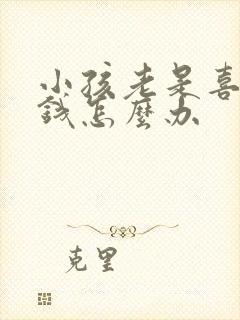 小孩老是喜
錢怎麼办
克里